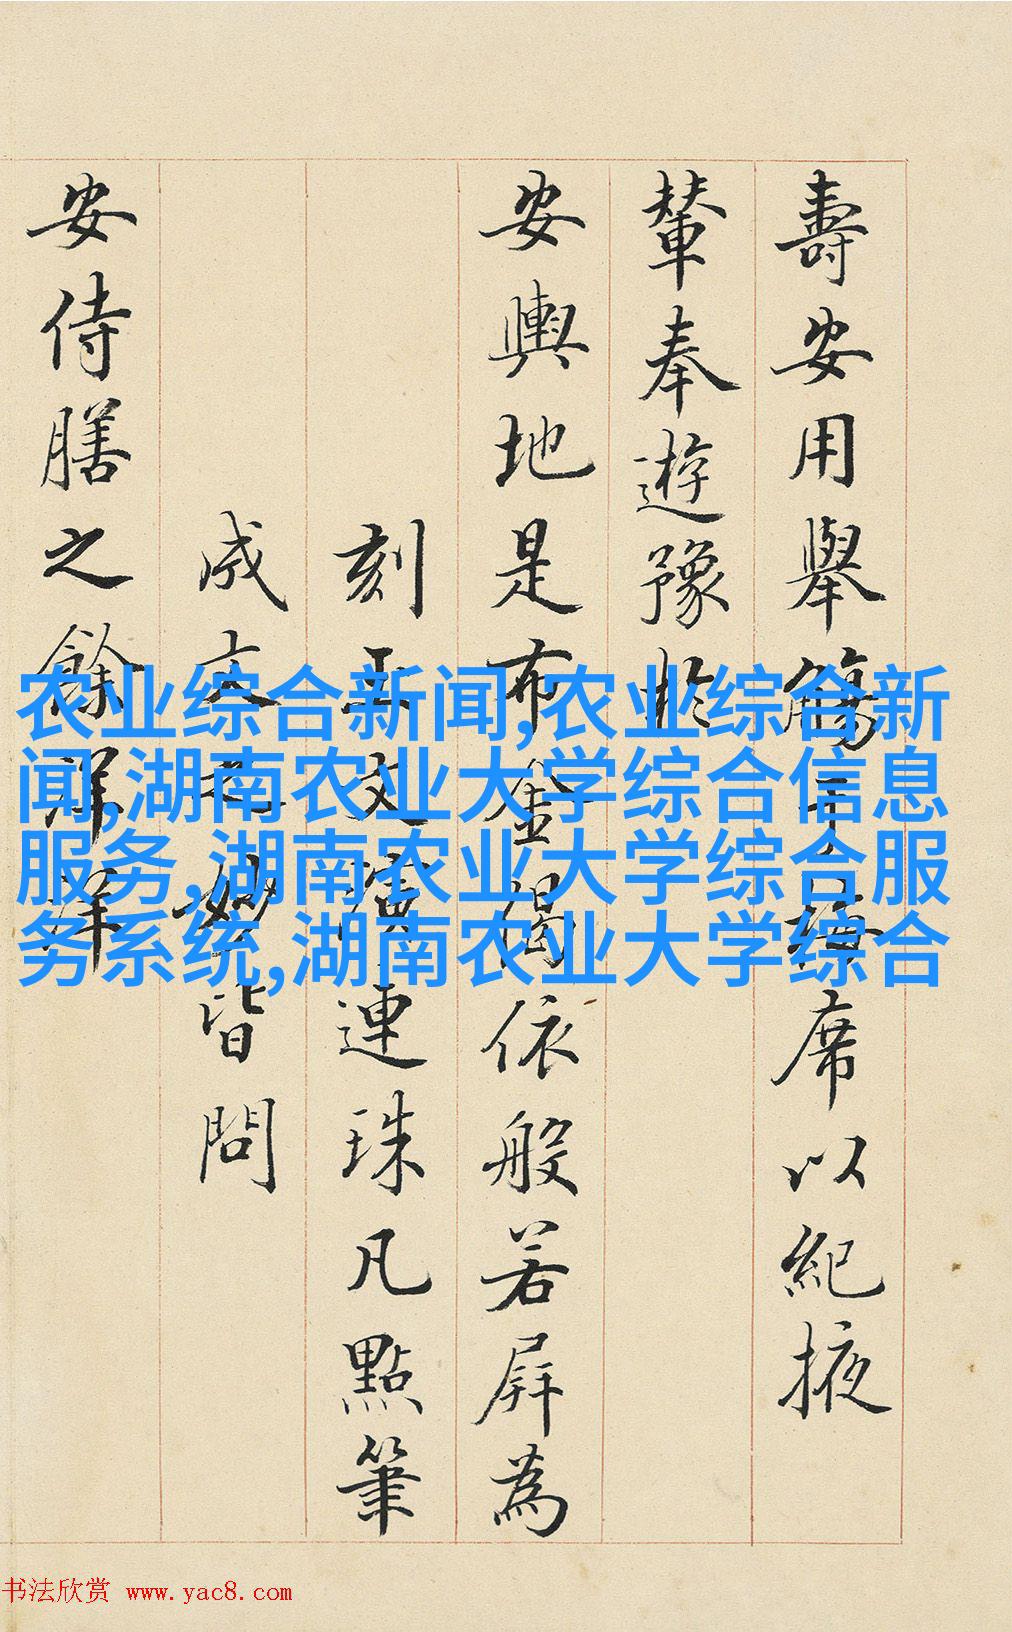 壽安用舉觴席以紀掖
輦奉遊豫於
安輿地是布金依般若屏為
刻玉文連珠凡點筆
成文妙皆問
安侍膳之餘
农业综合新闻,农业综合新
闻,湖南农业大学综合信息
服务,湖南农业大学综合服
务系统,湖南农业大学综合
书法欣赏 www.yac8.com